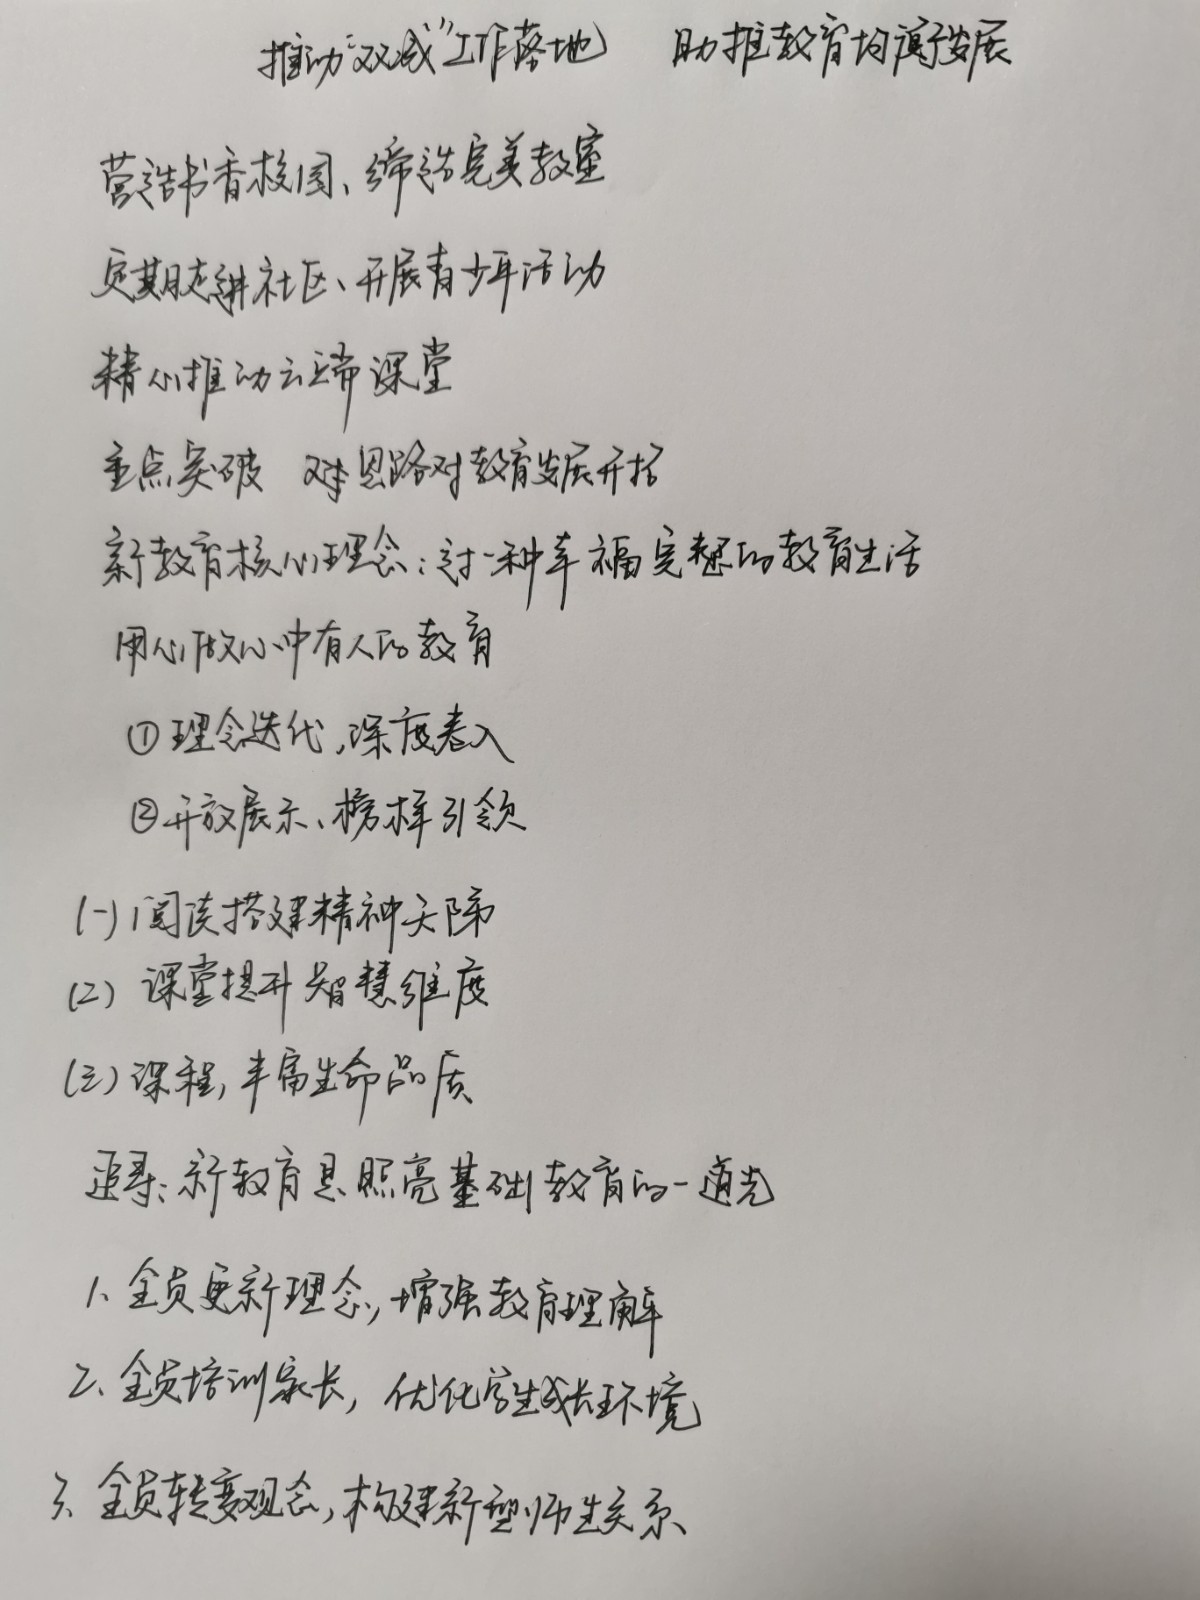 推动"双减"工作落地 助推教育均衡发展
营造书香校园、缔造完美教室
定期走进社区、开展青少年活动
精心推动云端课堂
重点突破 对教育发展
新教育核心理念:过一种幸福完整的教育生活
用心做心中有人的教育
①理念迭代,深度卷入
②开放展示、榜样引领
(一)阅读搭建精神天梯
(2)课堂提升智慧维度
(三)课程,丰富生命品质
追寻:新教育是照亮基础教育的一道光
1、全员更新理念,增强教育理解
2、全员培训家长,优化学生成长环境
3、全员转变观念,构建新型师生关系、